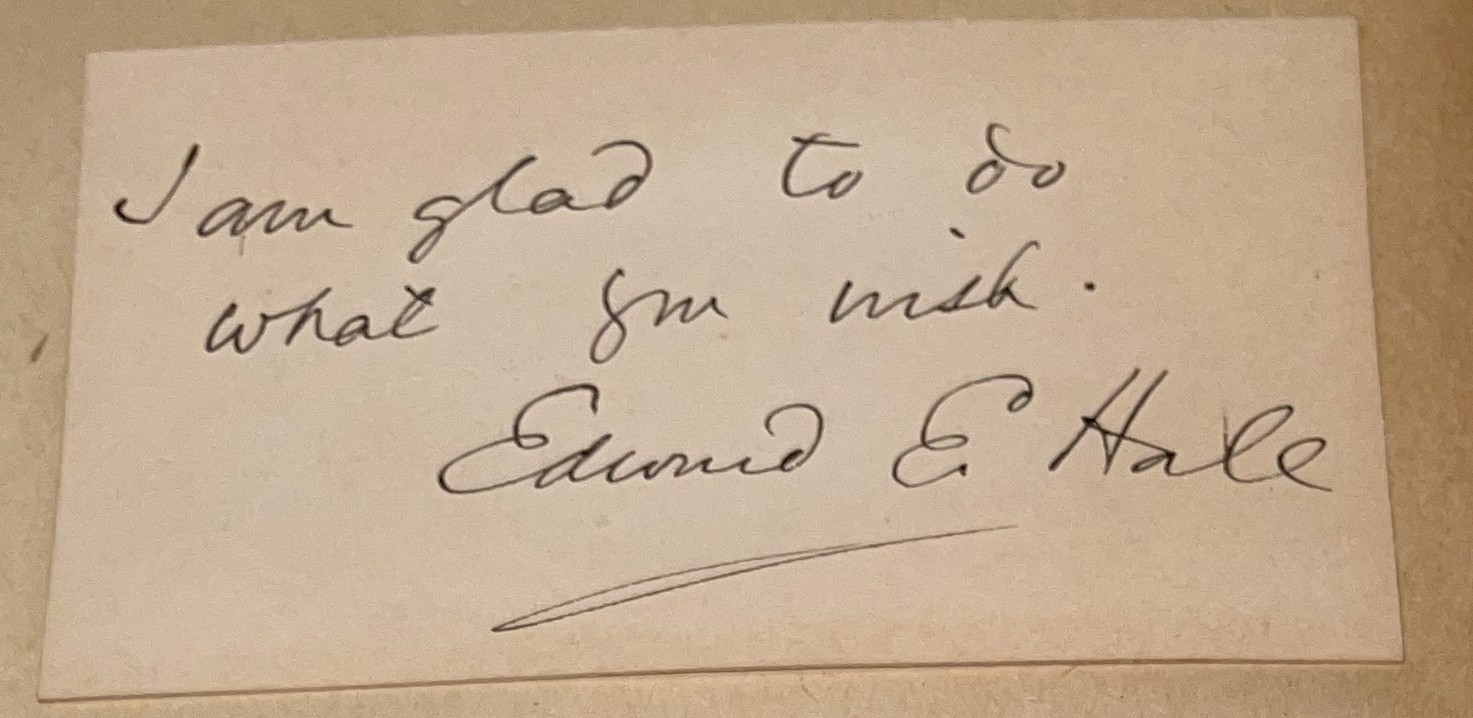 I am glad to do
what you wish.
Edward E. Hale